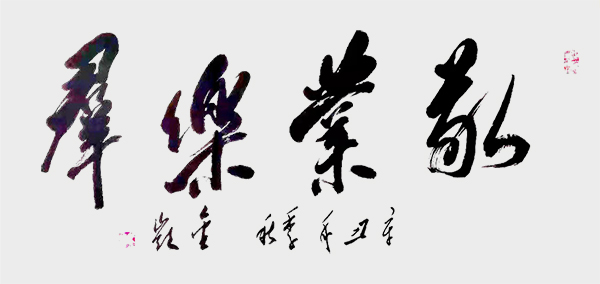 敬業樂羣
辛丑年季秋 金